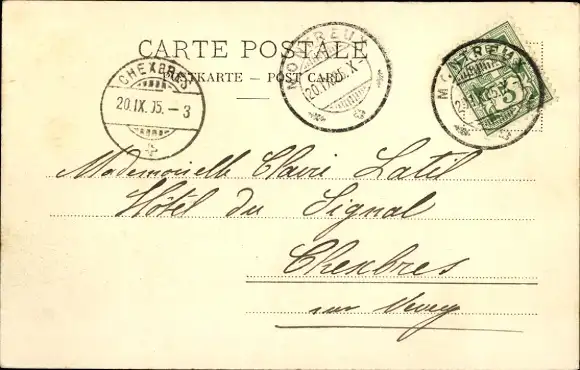 CARTE POSTALE
POSTKARTE – POST CARD
CHEXBRES
20.IX.05.–3
MONTREUX
20.IX.05.X–
MONTREUX
5
Mademoiselle Claire Latil
Hôtel du Signal
Chexbres
sur Vevey